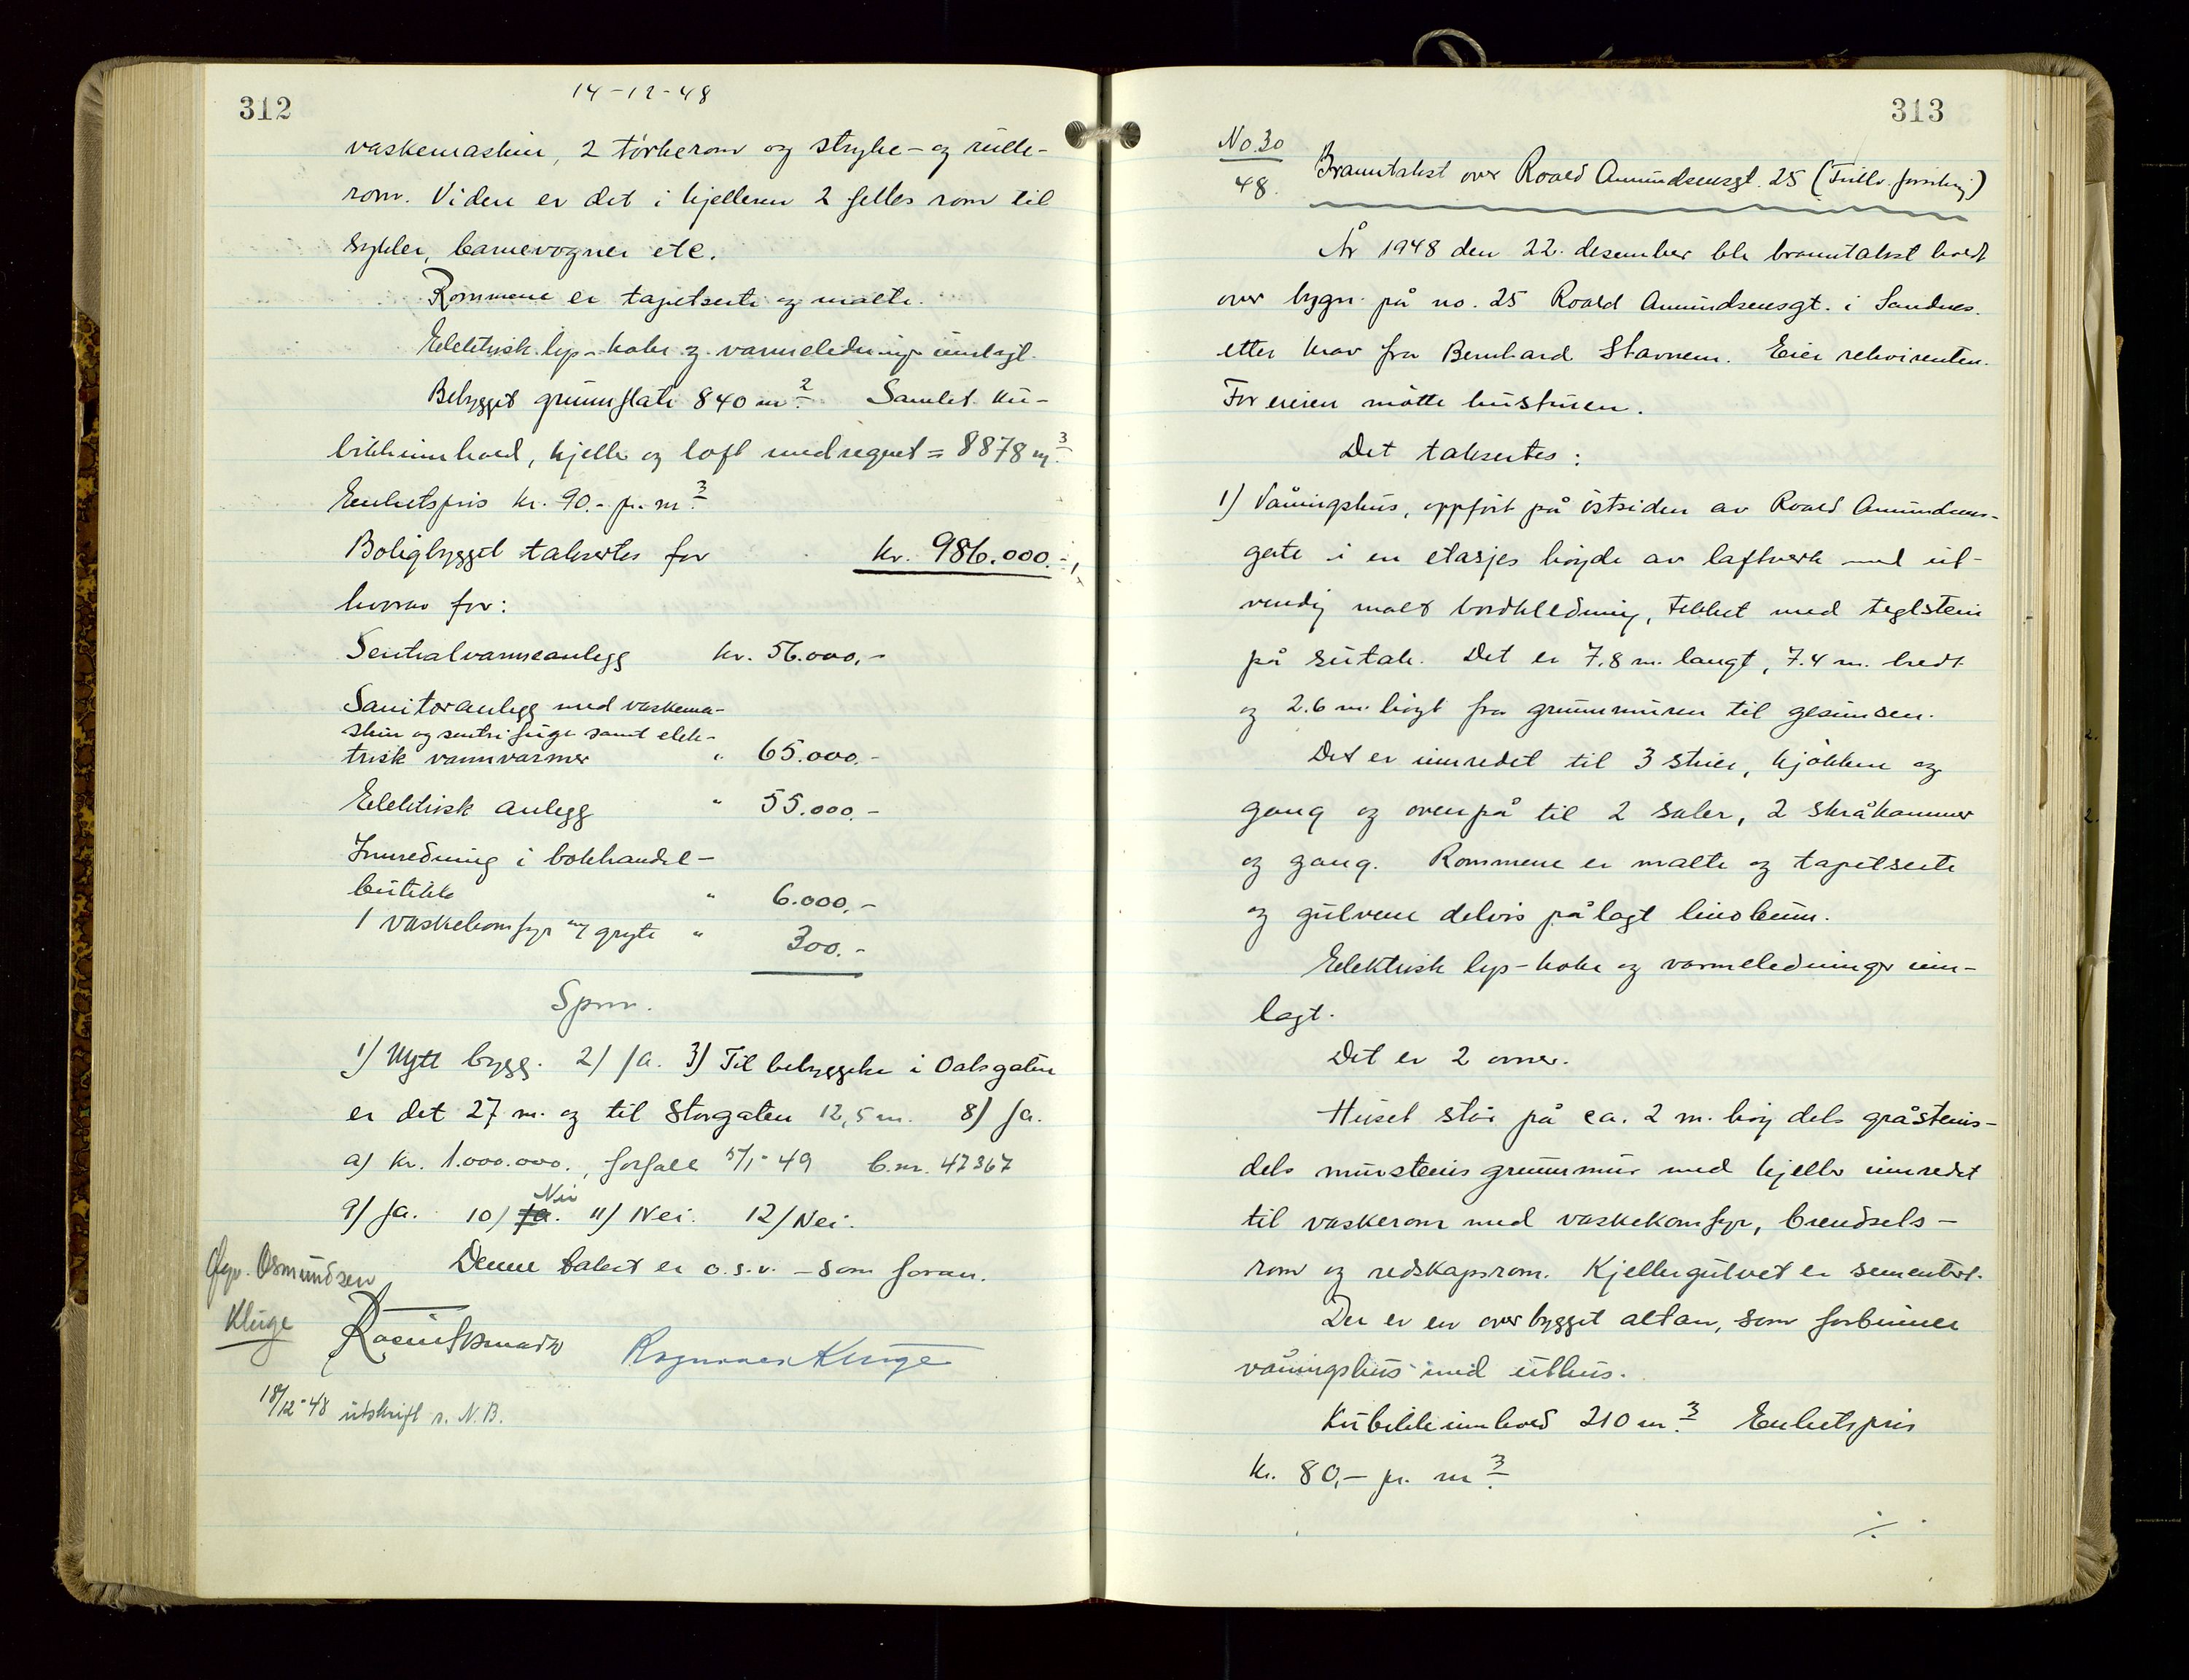 312
14-12-48
vaskemaskin, 2 törkerom og stryke- og rulle-
rom. Videre er det i kjelleren 2 felles rom til
sykler, barnevogner etc.
Rommene er tapetserte og malte.
Elektrisk lys- koke og varmeledninger innlagt.
Bebygget grunnflate 840 m². Samlet ku-
bikkinnhold, kjeller og loft medregnet = 8878 m³.
Enhetspris kr. 90.- pr. m³.
Boligbygget takseres for kr. 986.000.-,
hvorav for:
Sentralvarmeanlegg kr. 56.000,-
Sanitæranlegg med vaskema-
skin og sentrifuge samt elek-
trisk vannvarmer " 65.000.-
Elektrisk anlegg " 55.000.-
Innredning i bokhandel-
butikk " 6.000,-
1 vaskekomfyr m/ gryte " 300.-
Spm.
1) Nytt bygg. 2) Ja. 3) Til bebyggelse i Oalsgaten
er det 27 m. og til Storgaten 12,5 m. 8) Ja.
a) kr. 1.000.000., forfall 5/1-49 b.nr. 47367
9) Ja. 10) Ja. Nei 11) Nei. 12) Nei.
Denne takst er o.s.v. - som foran.
Osmundsen
Kluge
Ragnvald Kluge
18/12-48 utskrift s. N.B.
313
No. 30
48.
Branntakst over Roald Amundsensgt. 25 (Frillv. forsikring)
År 1948 den 22. desember ble branntakst holdt
over bygn. på no. 25 Roald Amundsensgt. i Sandnes.
etter krav fra Bernhard Stavnem. Eier rekvirenten.
For eieren mötte hustruen.
Det takseres:
1) Våningshus, oppfört på östsiden av Roald Amundsens-
gate i en etasjes höyde av laftverk med ut-
vendig malt bordkledning, tekket med teglstein
på sutak. Det er 7.8 m. langt, 7.4 m. bredt
og 2.6 m. höyt fra grunnmuren til gesimsen.
Det er innredet til 3 stuer, kjökken og
gang og ovenpå til 2 saler, 2 skråkammer
og gang. Rommene er malte og tapetserte
og gulvene delvis pålagt linoleum.
Elektrisk lys- koke og varmeledninger inn-
lagt.
Det er 2 ovner.
Huset står på ca. 2 m. höy dels gråsteins-
dels mursteins grunnmur med kjeller innredet
til vaskerom med vaskekomfyr, brendsels-
rom og redskapsrom. Kjellergulvet er sementert.
Der er en overbygget altan, som forbinner
våningshus med uthus.
Kubikkinnhold 210 m³. Enhetspris
kr. 80,- pr. m³.
./.